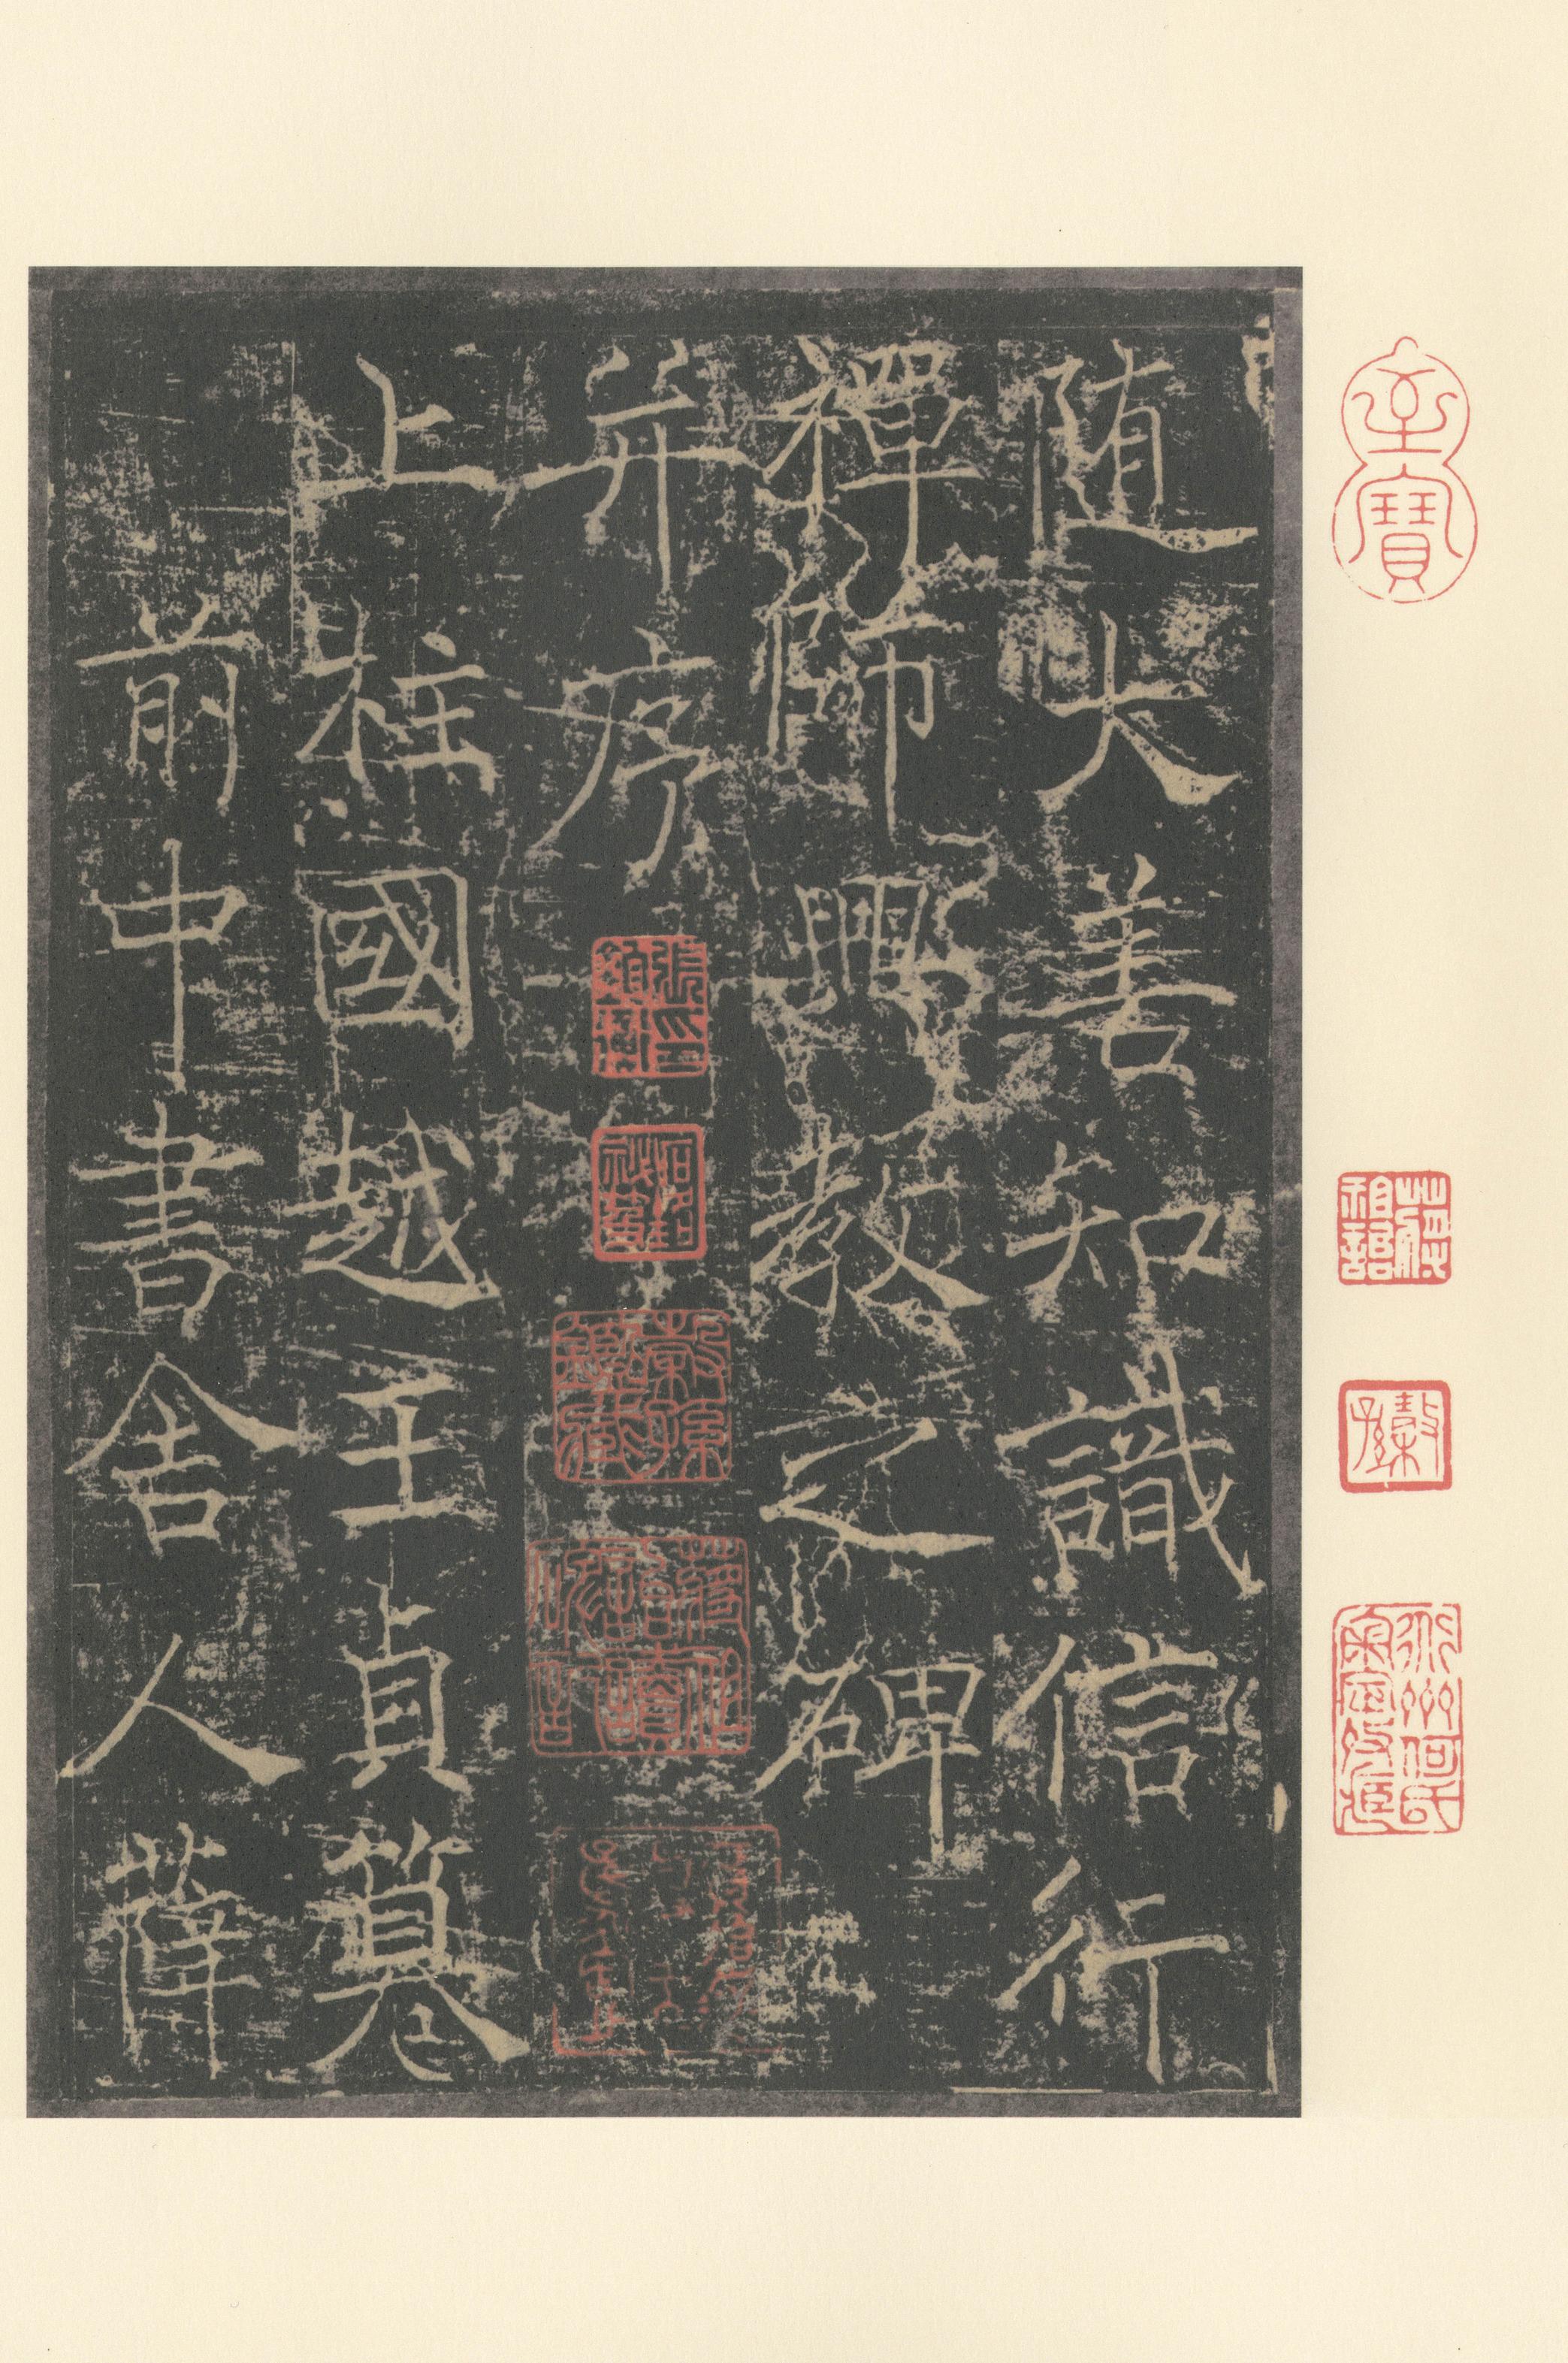 至寶
随大善知識信行
禪師興教之碑
并序
上柱國越王貞篹
前中書舍人薛